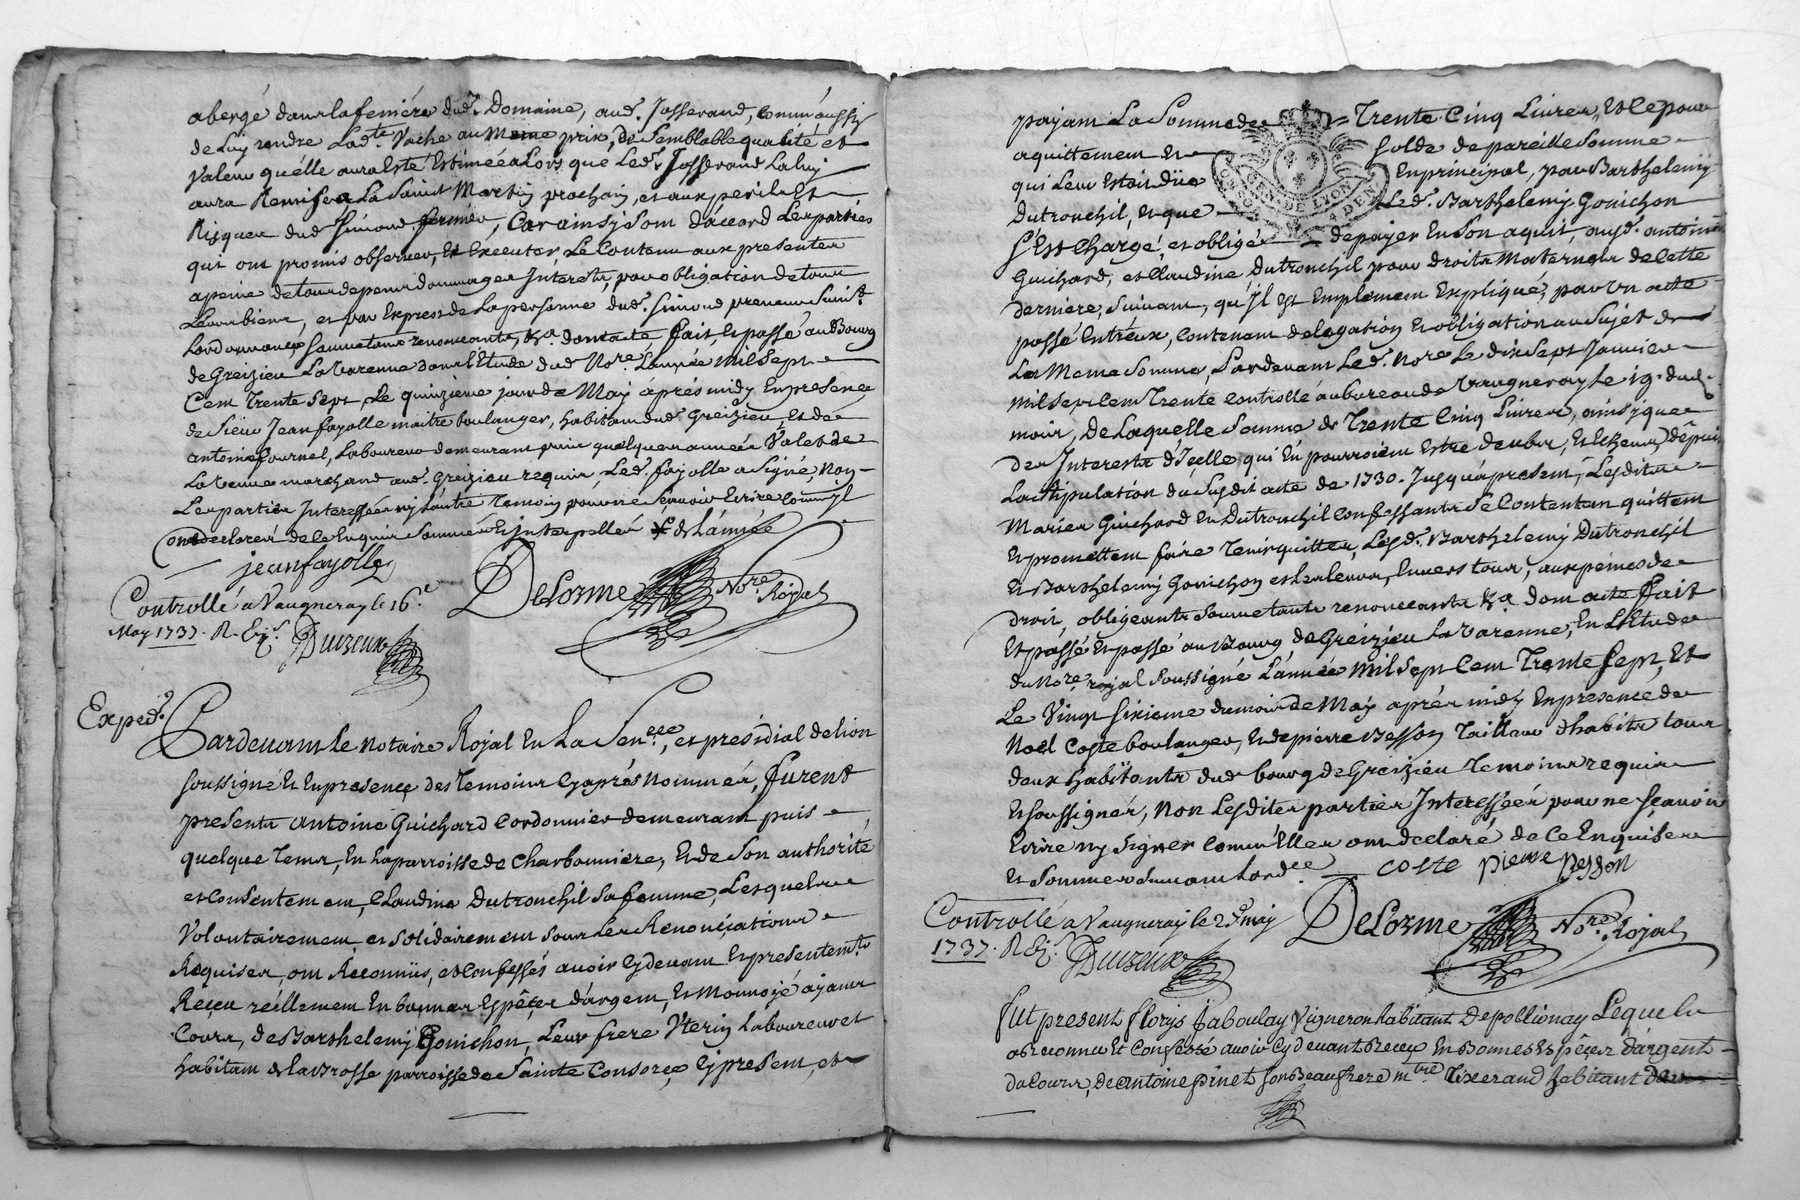 abergé dans la feniére dud. Domaine, aud. Josserand, comm'aussy
de Luy rendre Lad.te Vache au Meme prix, de Semblable qualité et
Valeur qu'elle aura Esté Estimée a Lors que Led. Josserand La luy
aura Remise a La Saint Martin prochain, et aux perils Et
Risques dud. Simond fermier, Car ainsy Sont d'accord Les parties
qui ont promis observer, Et Executer Le Contenu aux presentes
a peine de tous depens dommages Interests, par obligation de tous
Leurs biens, et par Express de La personne dud. Simond preneur Suiv.t
Lordonnance Soumetans renoncants, &.a dont acte fait, Et passé au Bourg
de Greizieu La Varenne dans l'Etude dud. No.re L'année Mil Sept
Cent Trente Sept, Le quinzième jour de May aprés midy En présence
de Sieur Jean fayolle maitre boulanger, habitant dud. Greizieu, Et de
antoine fournel, Laboureur demeurant puis quelques années Valet de
La veuve marchand aud. Greizieu requis, Led. fayolle a Signé, Non
Les parties Interessées ny L'autre Temoin pour ne Sçavoir Ecrire Comm'jl
ont declarés de ce Enquis Sommés et jnterpellés
jean fayolle
Delorme No.re Roÿal
Controllé a Vaugneray le 16.e
May 1737. R.
Exped.é
Pardevant Le Notaire Roÿal En La Sen.ée, et presidial de lion
soussigné Et En presence des Temoins Cy aprés Nommés, furent
presents antoine Guichard Cordonnier demeurant puis
quelque Tems, En La parroisse de Charbonniére, Et de Son authorité
et Consentement, Claudine Dutronchil Sa femme, Lesquels
Volontairement, et Solidairement Sous Les Renonciations
Requises, ont Reconnüs, et Confessés avoir Cy devant Et presentem.t
Reçeu réellement En bonnes Espéces d'argent, Et Monnoÿe ayant
Cours, de Barthelemy Gonichon, Leur frere Vterin Laboureur et
habitant de La Brosse parroisse de Sainte Consorce Cy present, et
payant La Somme de Trente Cinq Livres, Et Ce pour
aquittement Et solde de pareille Somme
qui Leur Estoit düe En principal, par Barthelemy
Dutronchil, Et que Led. Barthelemy Gonichon
S'Est Chargé, et obligé de payer En Son aquit, aux d. antoine
Guichard, et Claudine Dutronchil pour droits Maternels de Cette
derniére, Suivant, qu'jl Est Emplement Expliqué, par Vn acte
passé Entr'eux, Contenant delegation Et obligation au Sujet de
La Meme Somme, Pardevant Led. No.re Le dix Sept Janvier
Mil Sept Cent Trente Controllé au bureau de Vaugneray Le 19. dud.
mois, De Laquelle Somme de Trente Cinq Livres, ainsy que
des Interests d'jcelle qui En pourroient Estre deubs, Et Echeus, dépuis
La Stipulation du Susdit acte de 1730. Jusqu'a present, Lesdits
Mariés Guichard Et Dutronchil Confessants Se Contentent quittent
Et promettent faire Tenir quittes, Lesd. Barthelemy Dutronchil
Et Barthelemy Gonichon et Les leurs, Envers tous, aux peines de
droit, obligeants Soumetants renoncants &.a dont acte fait
Et passé Et passé au Bourg de Greizieu La Varenne, En L'Etude
du No.re royal Soussigné L'année Mil Sept Cent Trente Sept, Et
Le Vingt Sixieme du mois de May aprés midy En presence de
Noel Coste boulanger, Et de pierre Besson Tailleur d'habits tous
deux habitants dud. bourg de Greizieu Temoins requis
Et Soussignés, Non Lesdites parties Interessées pour ne Sçavoir
Ecrire ny Signer Comm'Elles ont declaré de Ce Enquises
Et Sommés Suivant Lord.ce
Coste Pierre Besson
Delorme No.re Roÿal
Controllé a Vaugneray le 2 may
1737. R.
fut present florys Jaboulay Vigneron habitant De pollionay Lequel
a Reconnu Et Confessé avoir Cy devant Receu En Bonnes Espéces d'argent
de Cours, de antoine pinet Son Beaufrere m.tre Tixerand habitant
GEN. DE LION